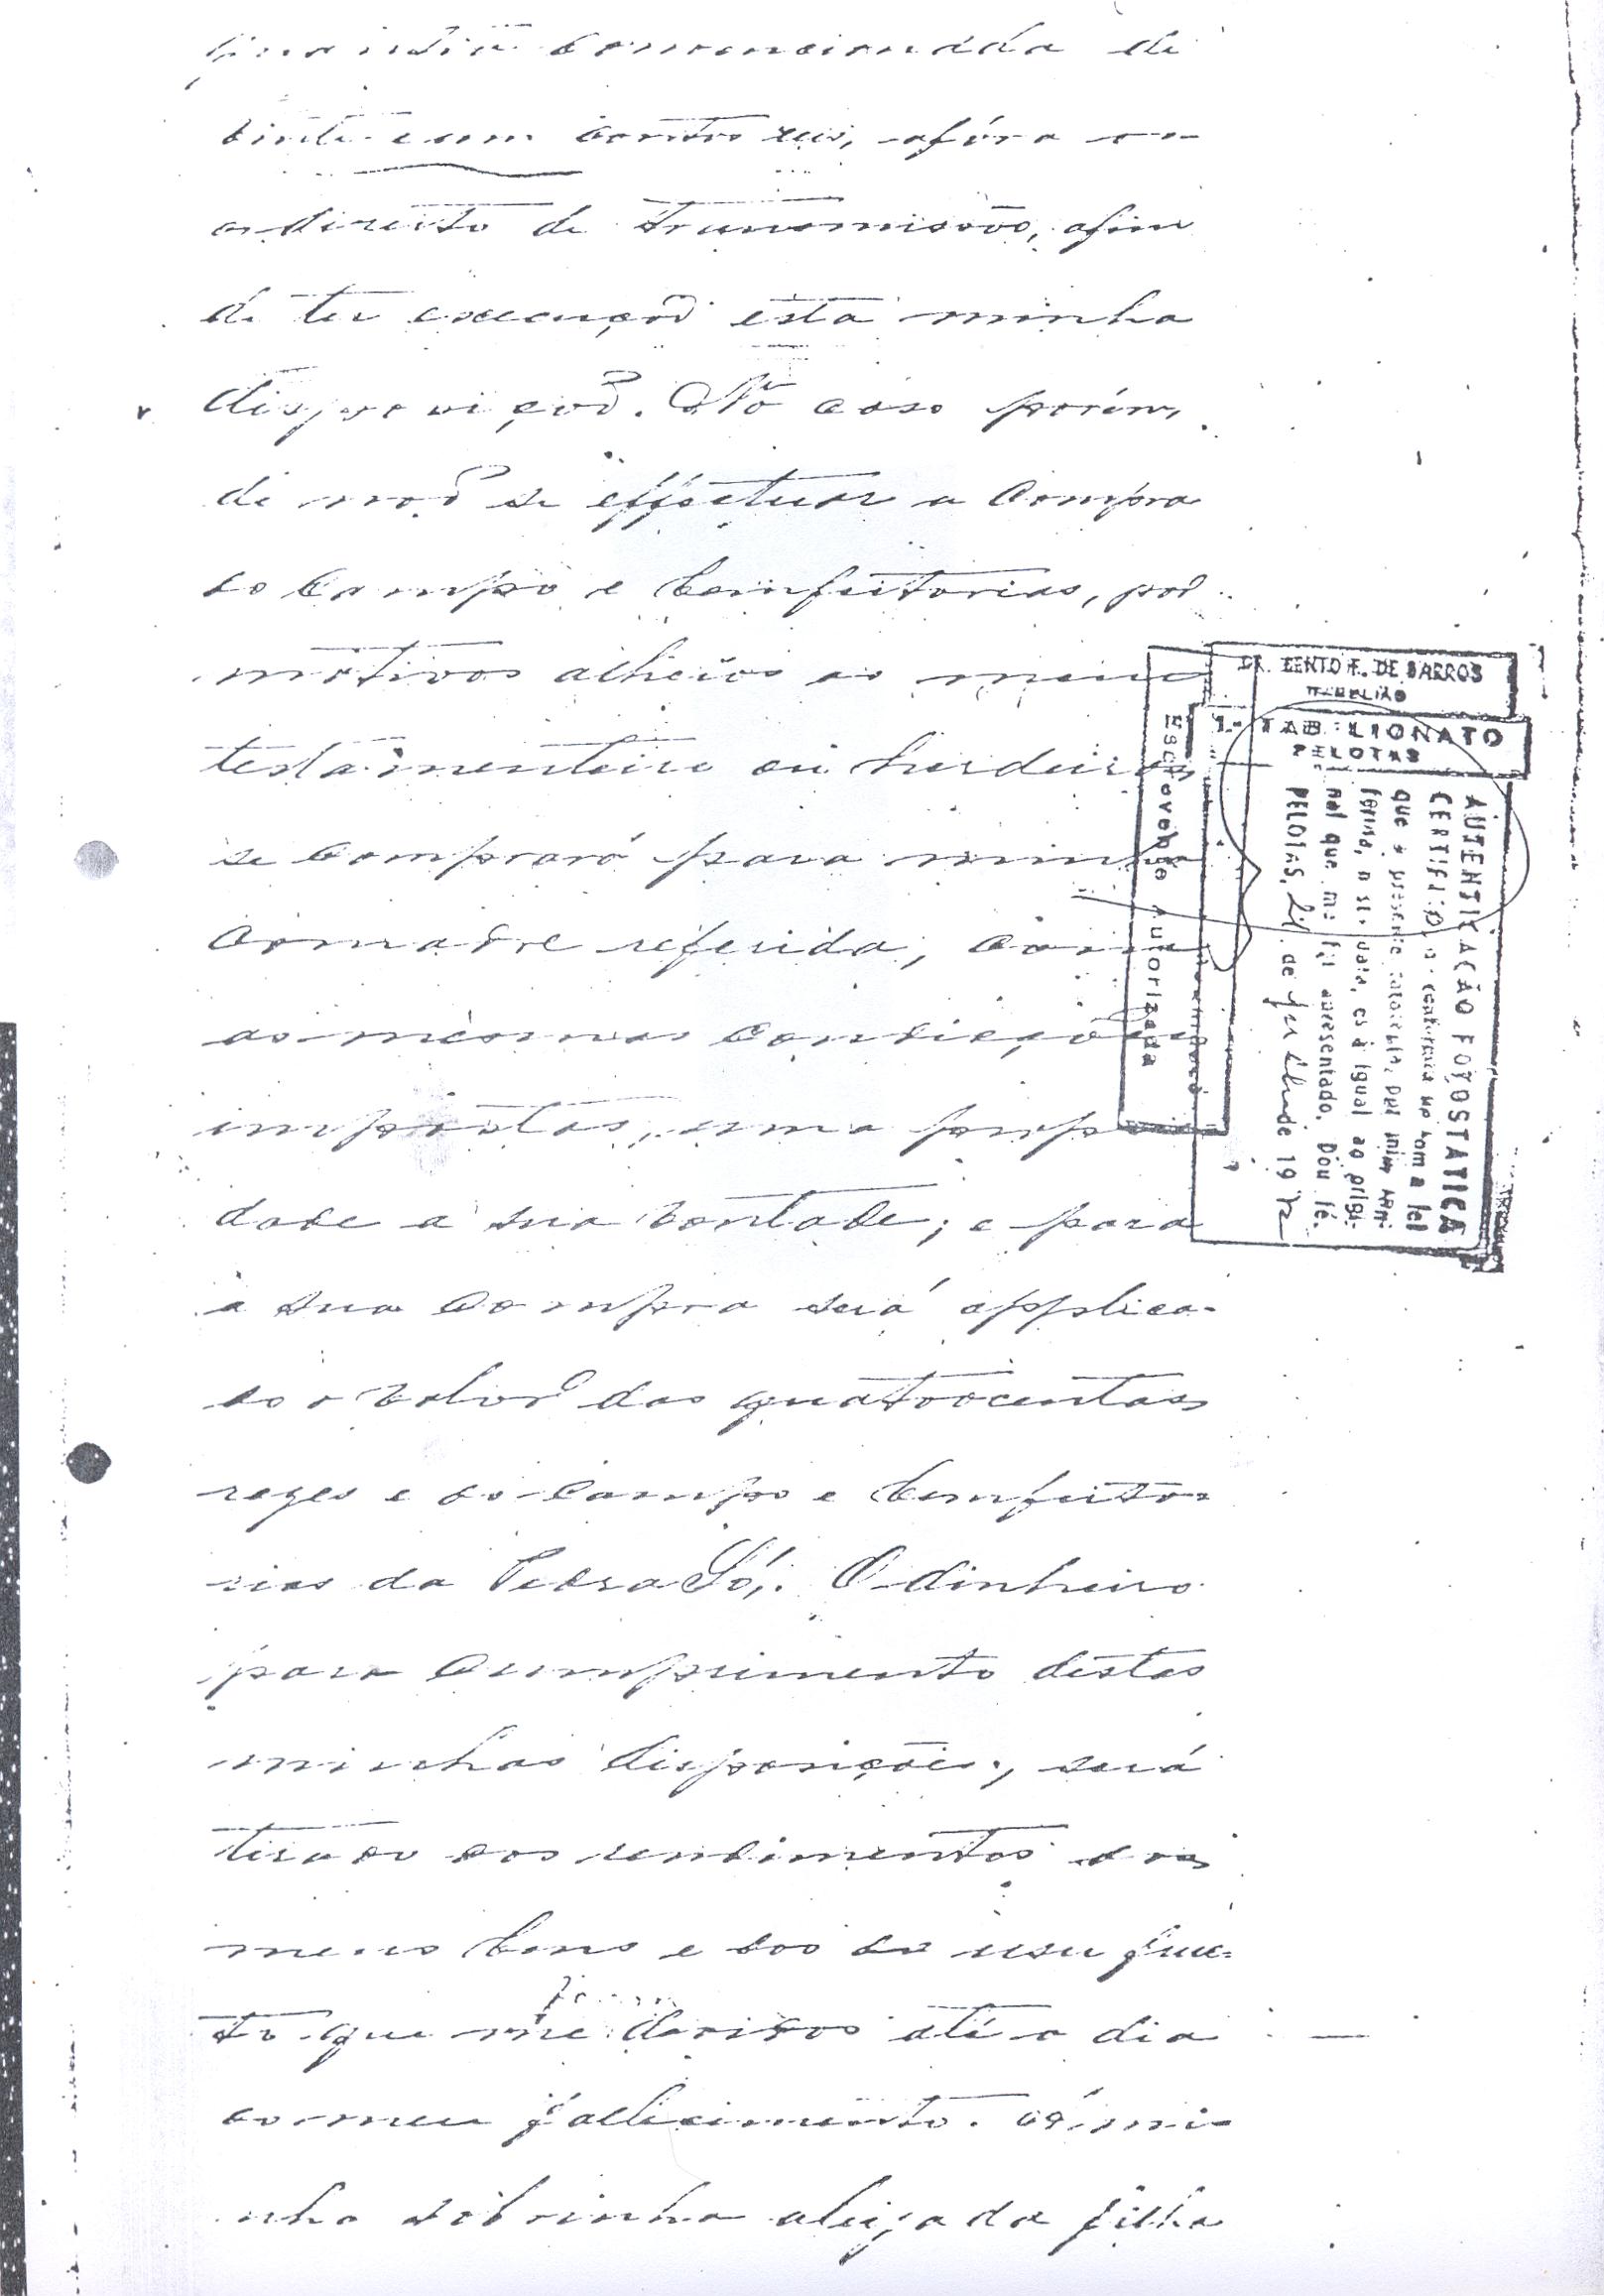 quantia convencionada de
vinte e um contos reis, afóra o
o direito de transmissão, afim
de ter execução esta minha
disposição. No caso porém,
de não se effectuar a compra
do Campo e bemfeitorias, por
motivos alheios ao meu
testamenteiro ou herdeiros
se comprará para minha
Comadre referida, com
as mesmas condicções
impostas, uma propie
dade a sua vontade; e para
a sua compra será applica-
do o valor das quatrocentas
rezes e do Campo e bemfeito-
rias da Pedra Só. O dinheiro
para cumprimento destas
minhas disposições, será
tirado dos rendimentos dos
meus bens e dos do usu fruc-
to que me devidos até o dia
do meu fallecimento. A mi-
nha sobrinha aleijada filha
DR. BENTO F. DE BARROS
TABELIÃO
1º TABELIONATO
PELOTAS
AUTENTICAÇÃO FOTOSTATICA
CERTIFICO, de conformidade com a lei
que a presente fotocopia, por mim
nal que me foi apresentado. Dou fé.
PELOTAS, de de 19
Escrevente Autorizada